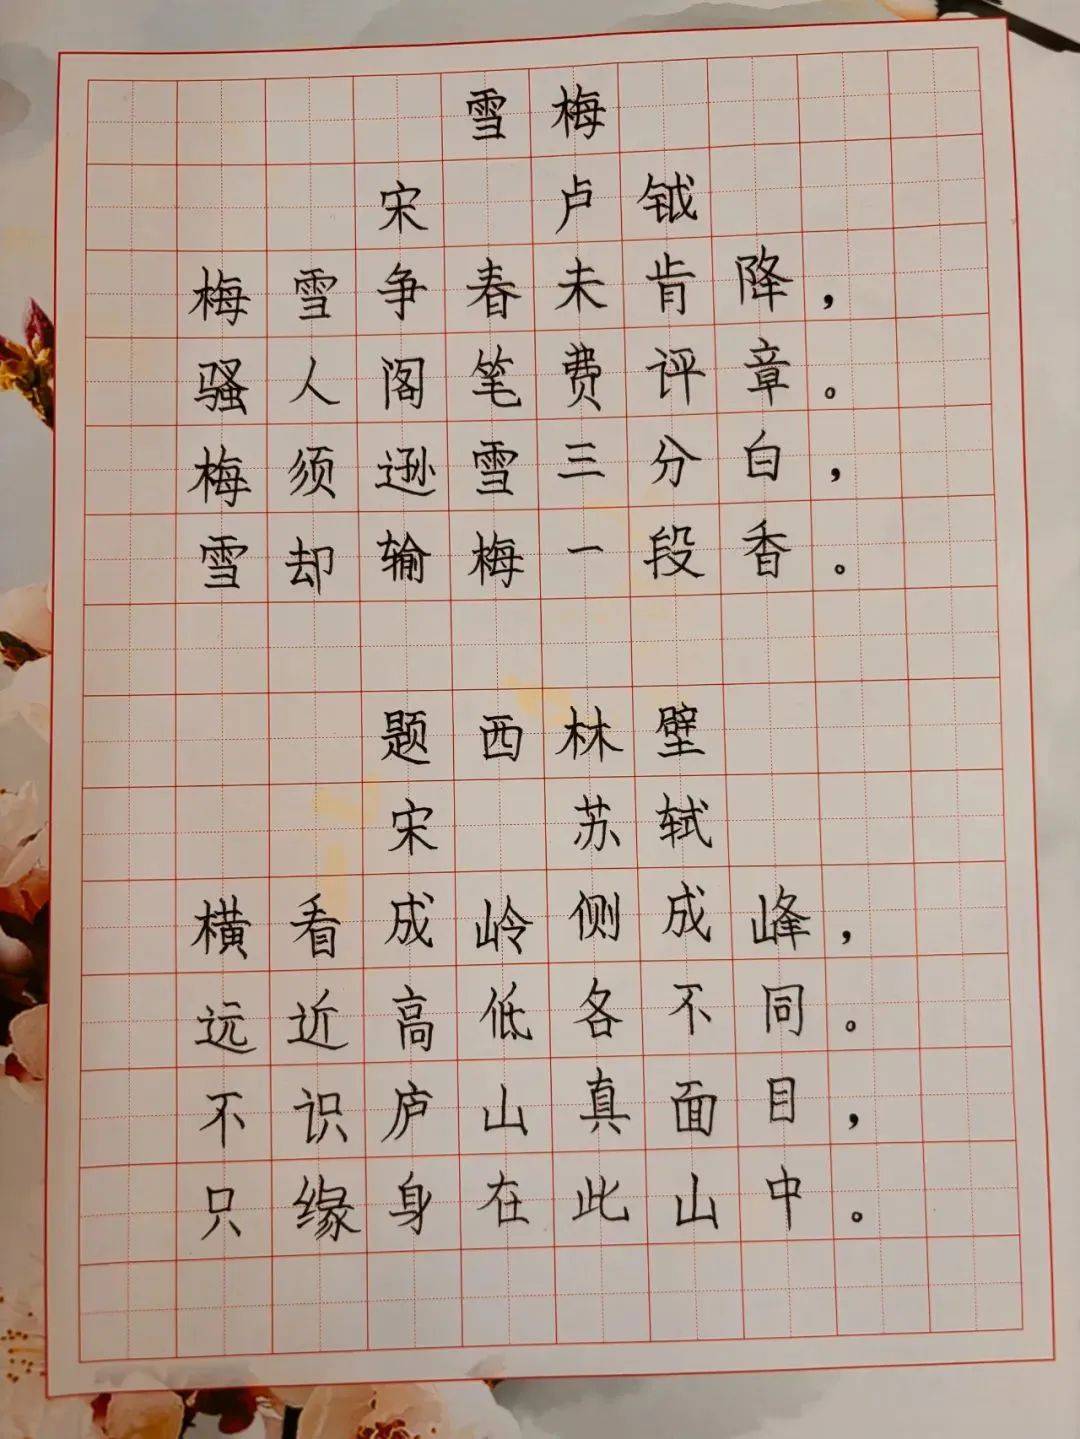 雪梅
宋 卢钺
梅雪争春未肯降，
骚人阁笔费评章。
梅须逊雪三分白，
雪却输梅一段香。
题西林壁
宋 苏轼
横看成岭侧成峰，
远近高低各不同。
不识庐山真面目，
只缘身在此山中。